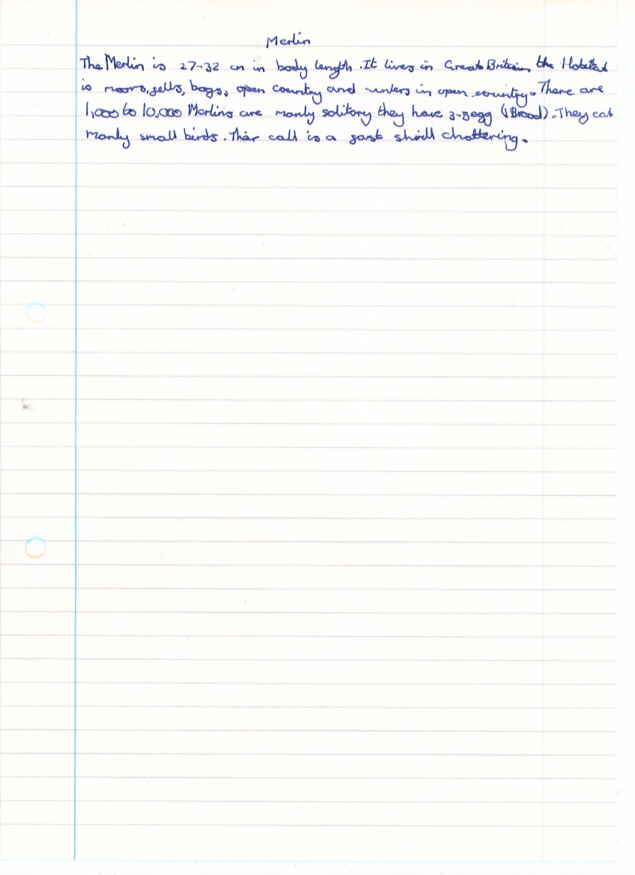 Merlin
The Merlin is 27-32 cm in body length. It lives in Great Britain, the Habitat
is moors, fells, bogs, open country and winters in open country. There are
1,000 to 10,000 Merlins are manly solitory they have 3-5 egg (1 Brood). They eat
manly small birds. Thar call is a fast shrill chattering.